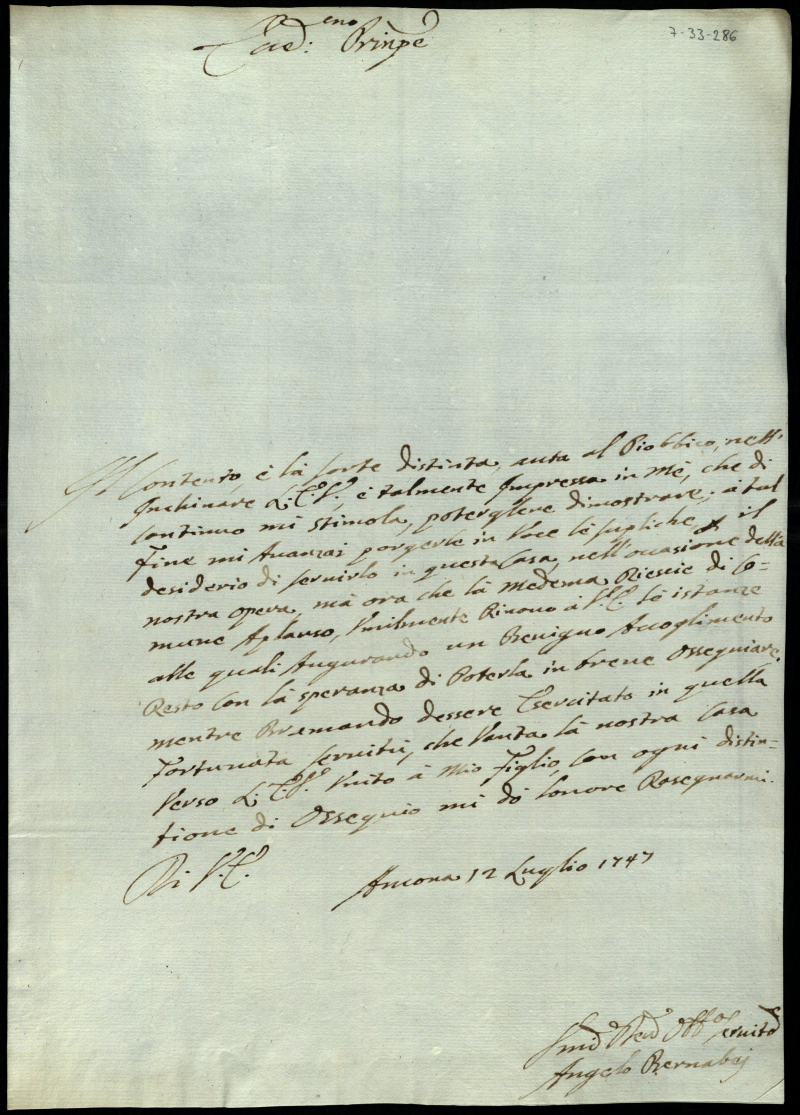 7-33-286
Prinpe
Il Contento, è la sorte distinta, auta al Piobbico, nell'
Inchinare L. E. V., è talmente Impressa in Mè, che di
Continuo mi stimola, poterglene dimostrare; à tal
Fine mi Avanzai porgerle in Voce le supliche, il
desiderio di servirlo in questa Casa, nell'occasione della
nostra opera, mà ora che là Medema Riescie di Co=
mune Aplauso, Umilmente Rinovo à V. E. Le istanze
alle quali Augurando un Benigno Accoglimento
Resto Con là speranza di Poterla in breve Ossequiare,
mentre Bramando dessere Esercitato in quella
Fortunata servitù, che Vanta là nostra Casa
Verso L. E. V. Unito à Mio Figlio, Con ogni distin=
tione di Ossequio mi dò lonore Rasegnarmi.
Di V. E.
Ancona 12 Luglio 1747
Angelo Bernabej